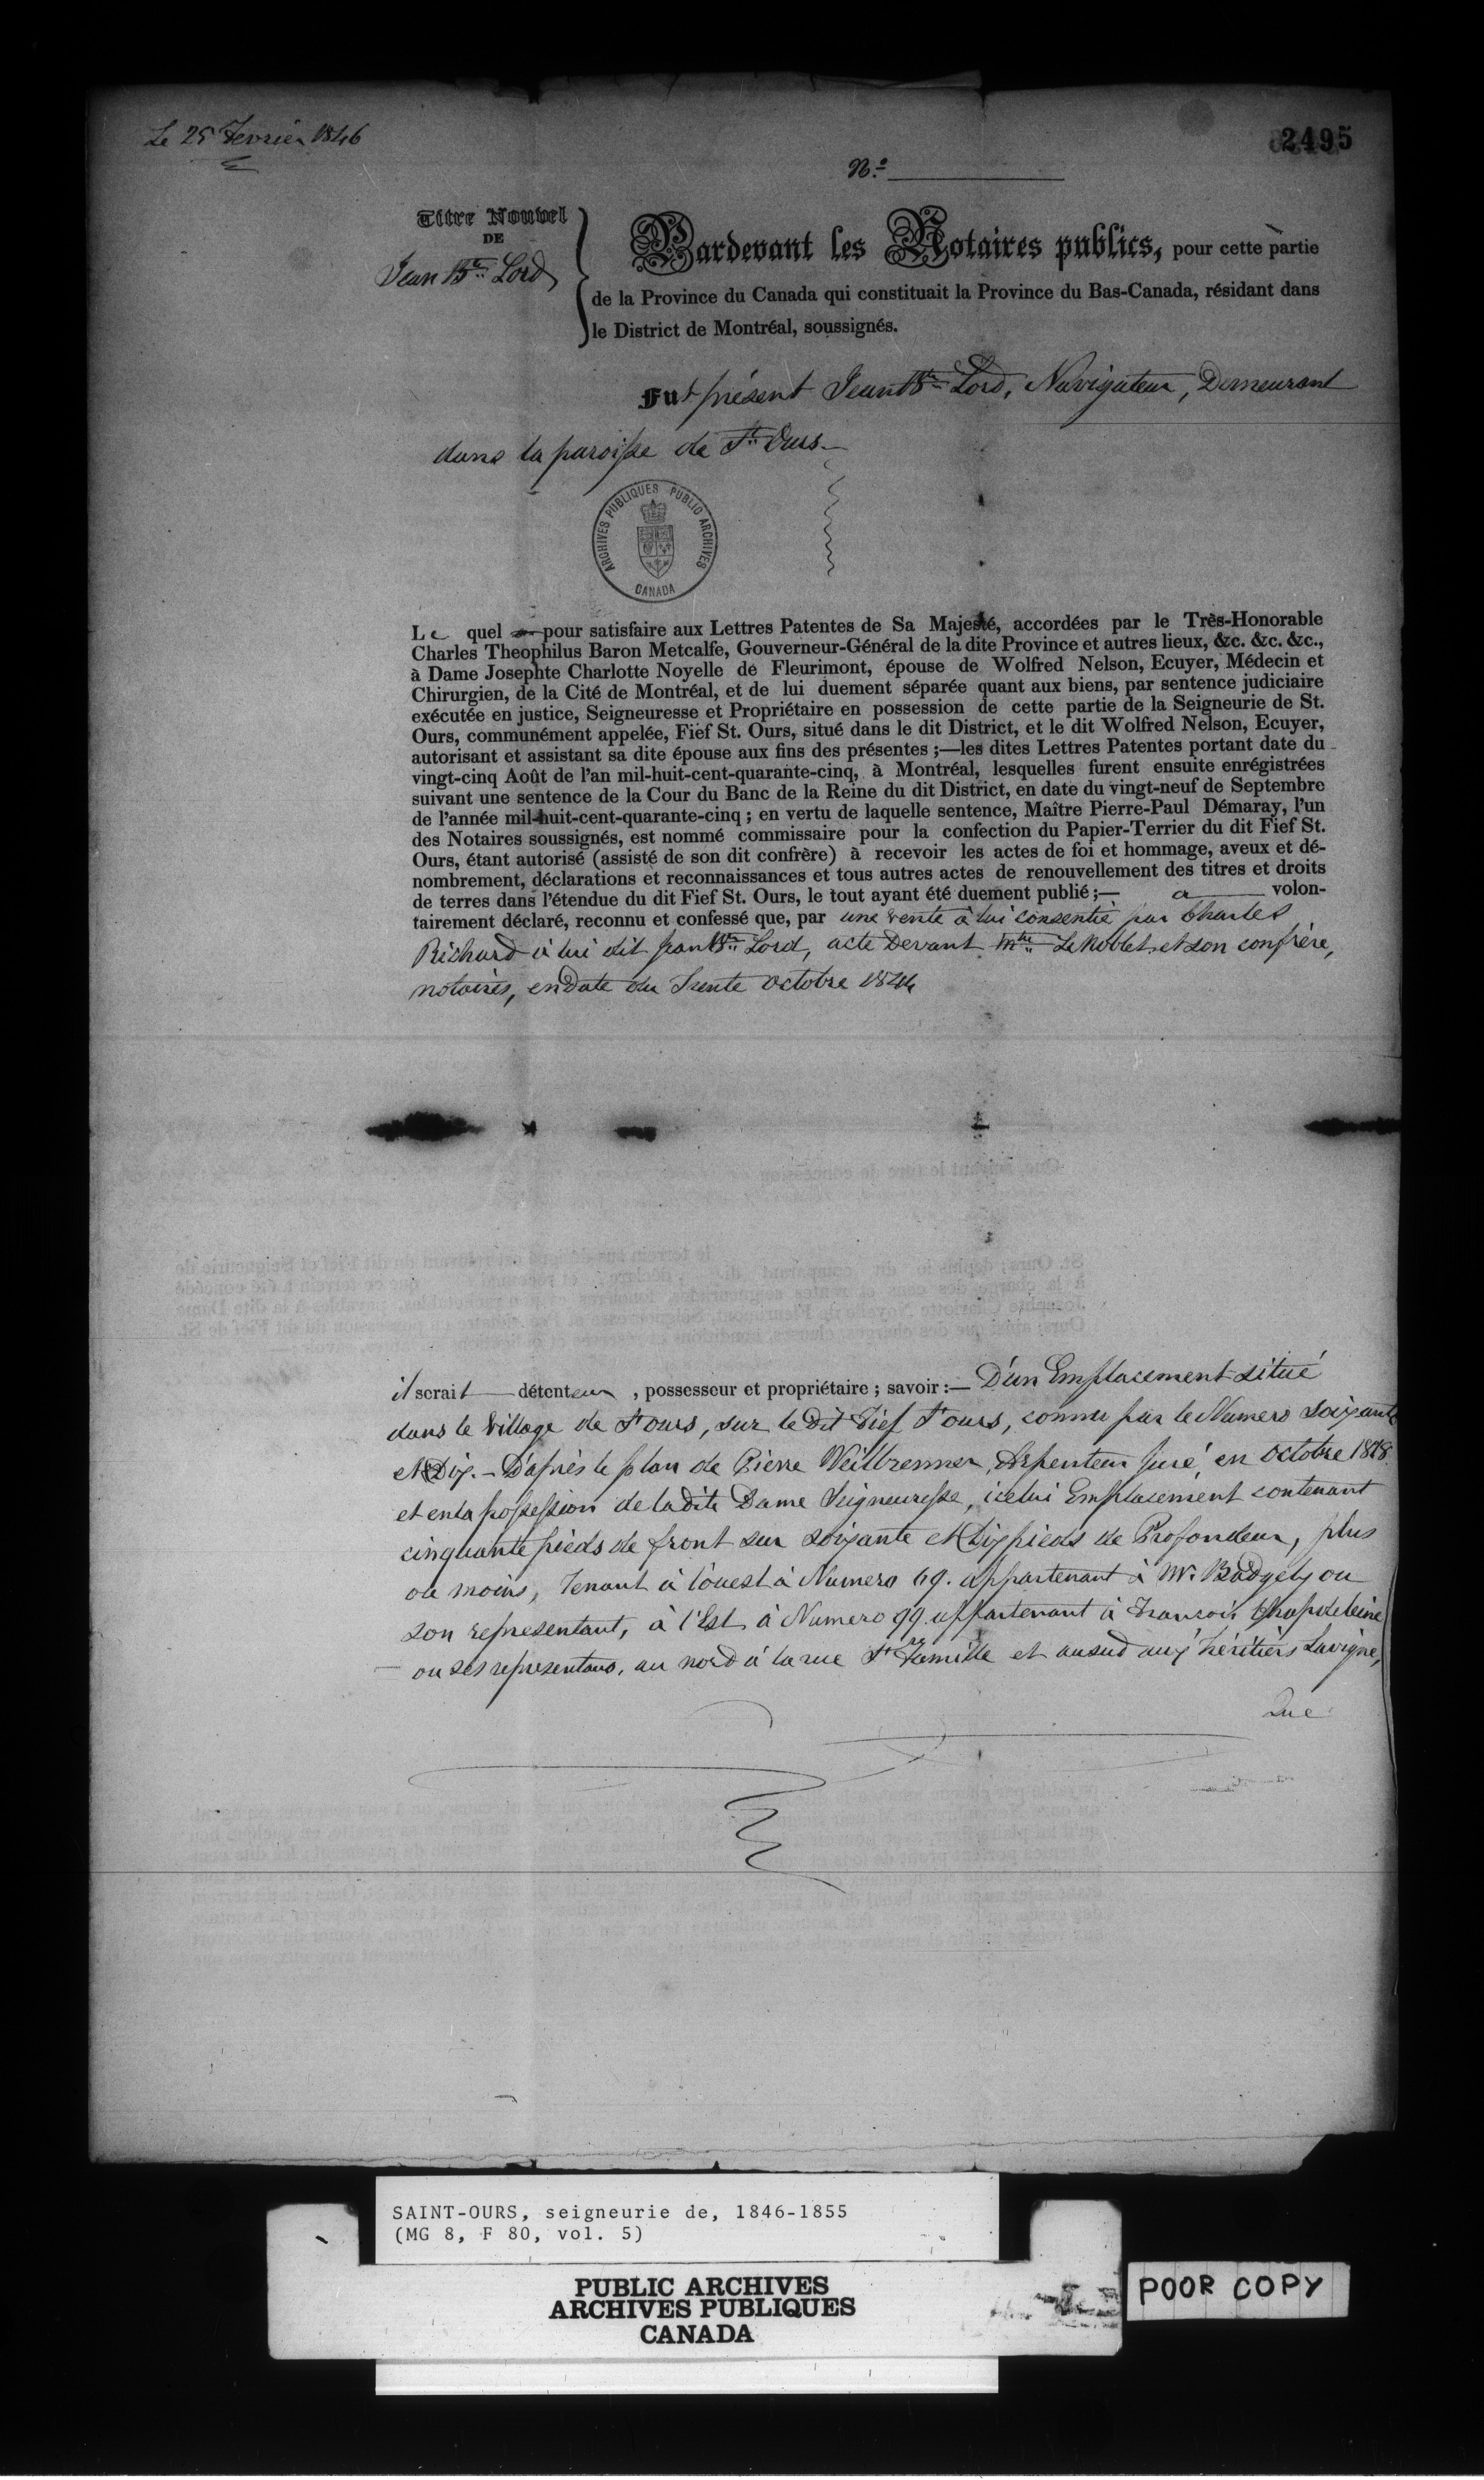 Le 25 Fevrier 1846
2495
N.º
Titre Nouvel
DE
Jean Bte Lord
Pardevant les Notaires publics, pour cette partie
de la Province du Canada qui constituait la Province du Bas-Canada, résidant dans
le District de Montréal, soussignés.
Fut présent Jean Bte Lord, Navigateur, Demeurant
dans la paroisse de St Ours
ARCHIVES PUBLIQUES PUBLIC ARCHIVES
CANADA
Le quel pour satisfaire aux Lettres Patentes de Sa Majesté, accordées par le Très-Honorable
Charles Theophilus Baron Metcalfe, Gouverneur-Général de la dite Province et autres lieux, &c. &c. &c.,
à Dame Josephte Charlotte Noyelle de Fleurimont, épouse de Wolfred Nelson, Ecuyer, Médecin et
Chirurgien, de la Cité de Montréal, et de lui duement séparée quant aux biens, par sentence judiciaire
exécutée en justice, Seigneuresse et Propriétaire en possession de cette partie de la Seigneurie de St.
Ours, communément appelée, Fief St. Ours, situé dans le dit District, et le dit Wolfred Nelson, Ecuyer,
autorisant et assistant sa dite épouse aux fins des présentes ;—les dites Lettres Patentes portant date du
vingt-cinq Août de l'an mil-huit-cent-quarante-cinq, à Montréal, lesquelles furent ensuite enrégistrées
suivant une sentence de la Cour du Banc de la Reine du dit District, en date du vingt-neuf de Septembre
de l'année mil-huit-cent-quarante-cinq ; en vertu de laquelle sentence, Maître Pierre-Paul Démaray, l'un
des Notaires soussignés, est nommé commissaire pour la confection du Papier-Terrier du dit Fief St.
Ours, étant autorisé (assisté de son dit confrère) à recevoir les actes de foi et hommage, aveux et dé-
nombrement, déclarations et reconnaissances et tous autres actes de renouvellement des titres et droits
de terres dans l'étendue du dit Fief St. Ours, le tout ayant été duement publié ;— a volon-
tairement déclaré, reconnu et confessé que, par une vente à lui consentie par Charles
Richard à lui dit Jean Bte Lord, acte Devant Mtre LeNoblet et son confrère,
notaires, en date du Trente octobre 1844
il serait détenteur , possesseur et propriétaire ; savoir :— D'un Emplacement situé
dans le Village de St ours, sur le dit Fief St ours, connu par le Numero soixante
et Dix. - D'après le plan de Pierre Weilbrenner, Arpenteur Juré, en octobre 1818
et en la possession de la dite Dame Seigneuresse, icelui Emplacement contenant
cinquante pieds de front sur soixante et Dix pieds de Profondeur, plus
ou moins, Tenant à l'ouest à Numero 69. appartenant à Mr. Badgely ou
son representant, à l'Est à Numero 99 appartenant à Francois Chapdeleine
ou ses representans, au nord à la rue Ste Famille et au sud aux héritiers Lavigne,
Que
SAINT-OURS, seigneurie de, 1846-1855
(MG 8, F 80, vol. 5)
PUBLIC ARCHIVES
ARCHIVES PUBLIQUES
CANADA
POOR COPY